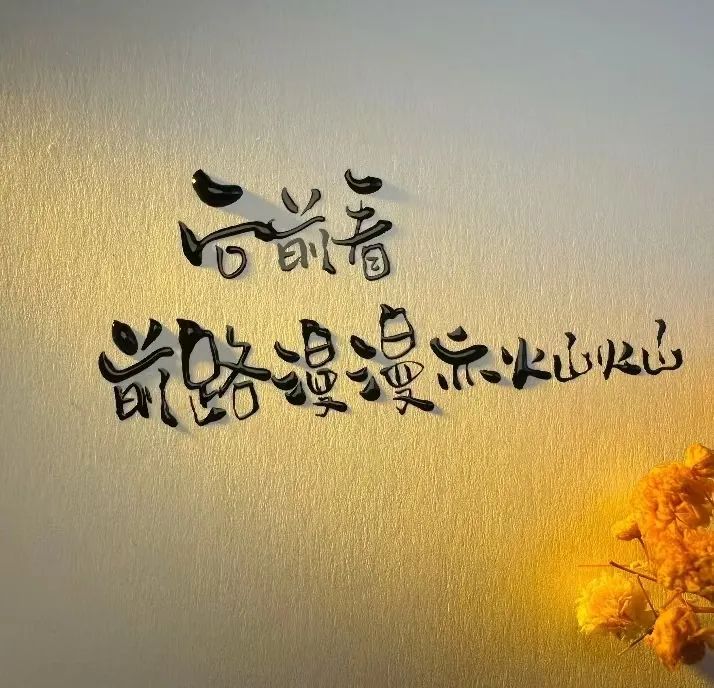 向前看
前路漫漫亦灿灿